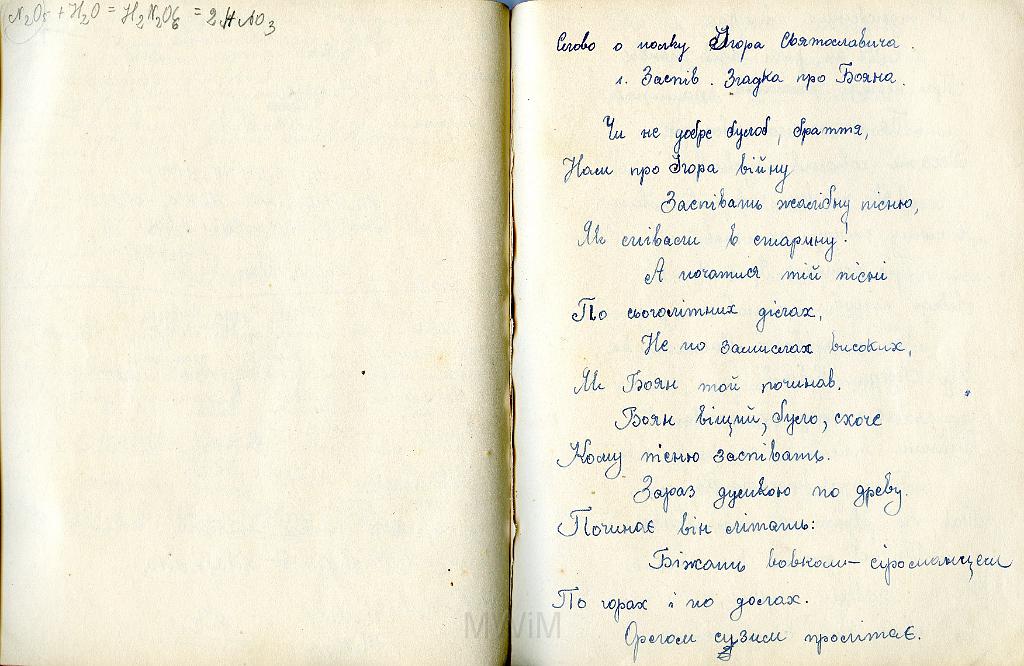 N2O5 + H2O = H2N2O6 = 2HNO3
Слово о полку Ігора Святославича.
1. Заспів. Згадка про Бояна.
Чи не добре булоб, браття,
Нам про Ігора війну
Заспівать жалібну пісню,
Як співали в старину!
А початися тій пісні
По сьоголітних ділах,
Не по замислах високих,
Як Боян той починав.
Боян віщий, було, схоче
Кому пісню заспівать.
Зараз думкою по древу
Починає він літать:
Біжать вовком–сіроманцем
По горах і по долах.
Орлом сизим пролітає.
MWiM